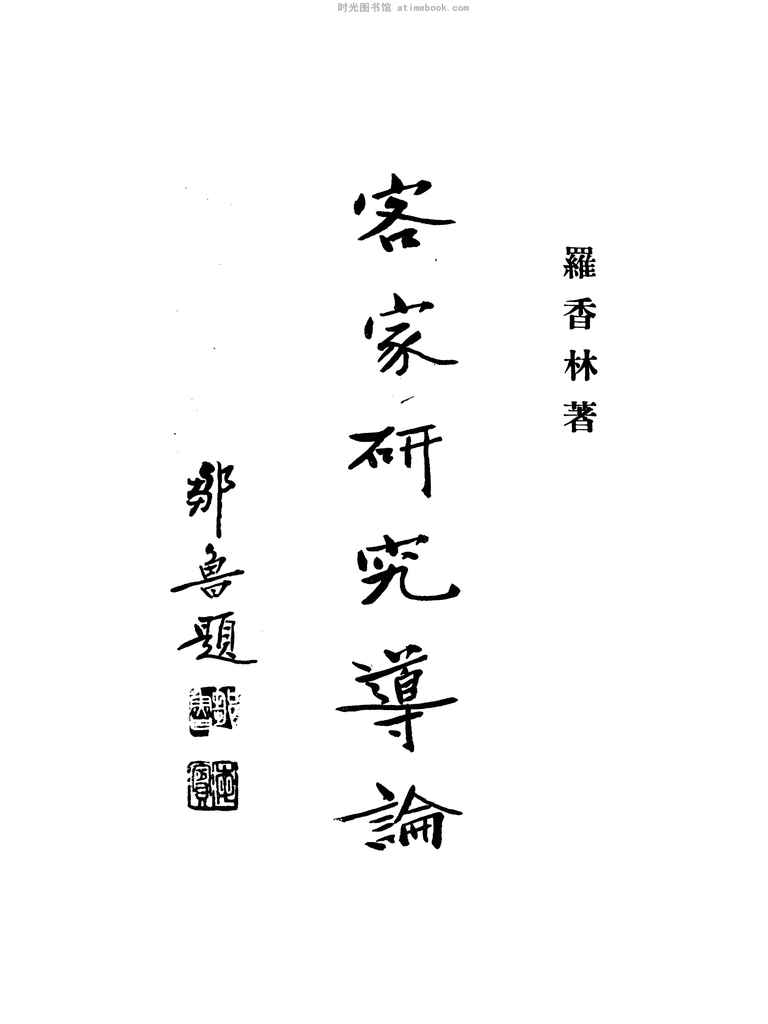 时光图书馆 atimebook.com
羅香林著
客家研究導論
鄒魯題